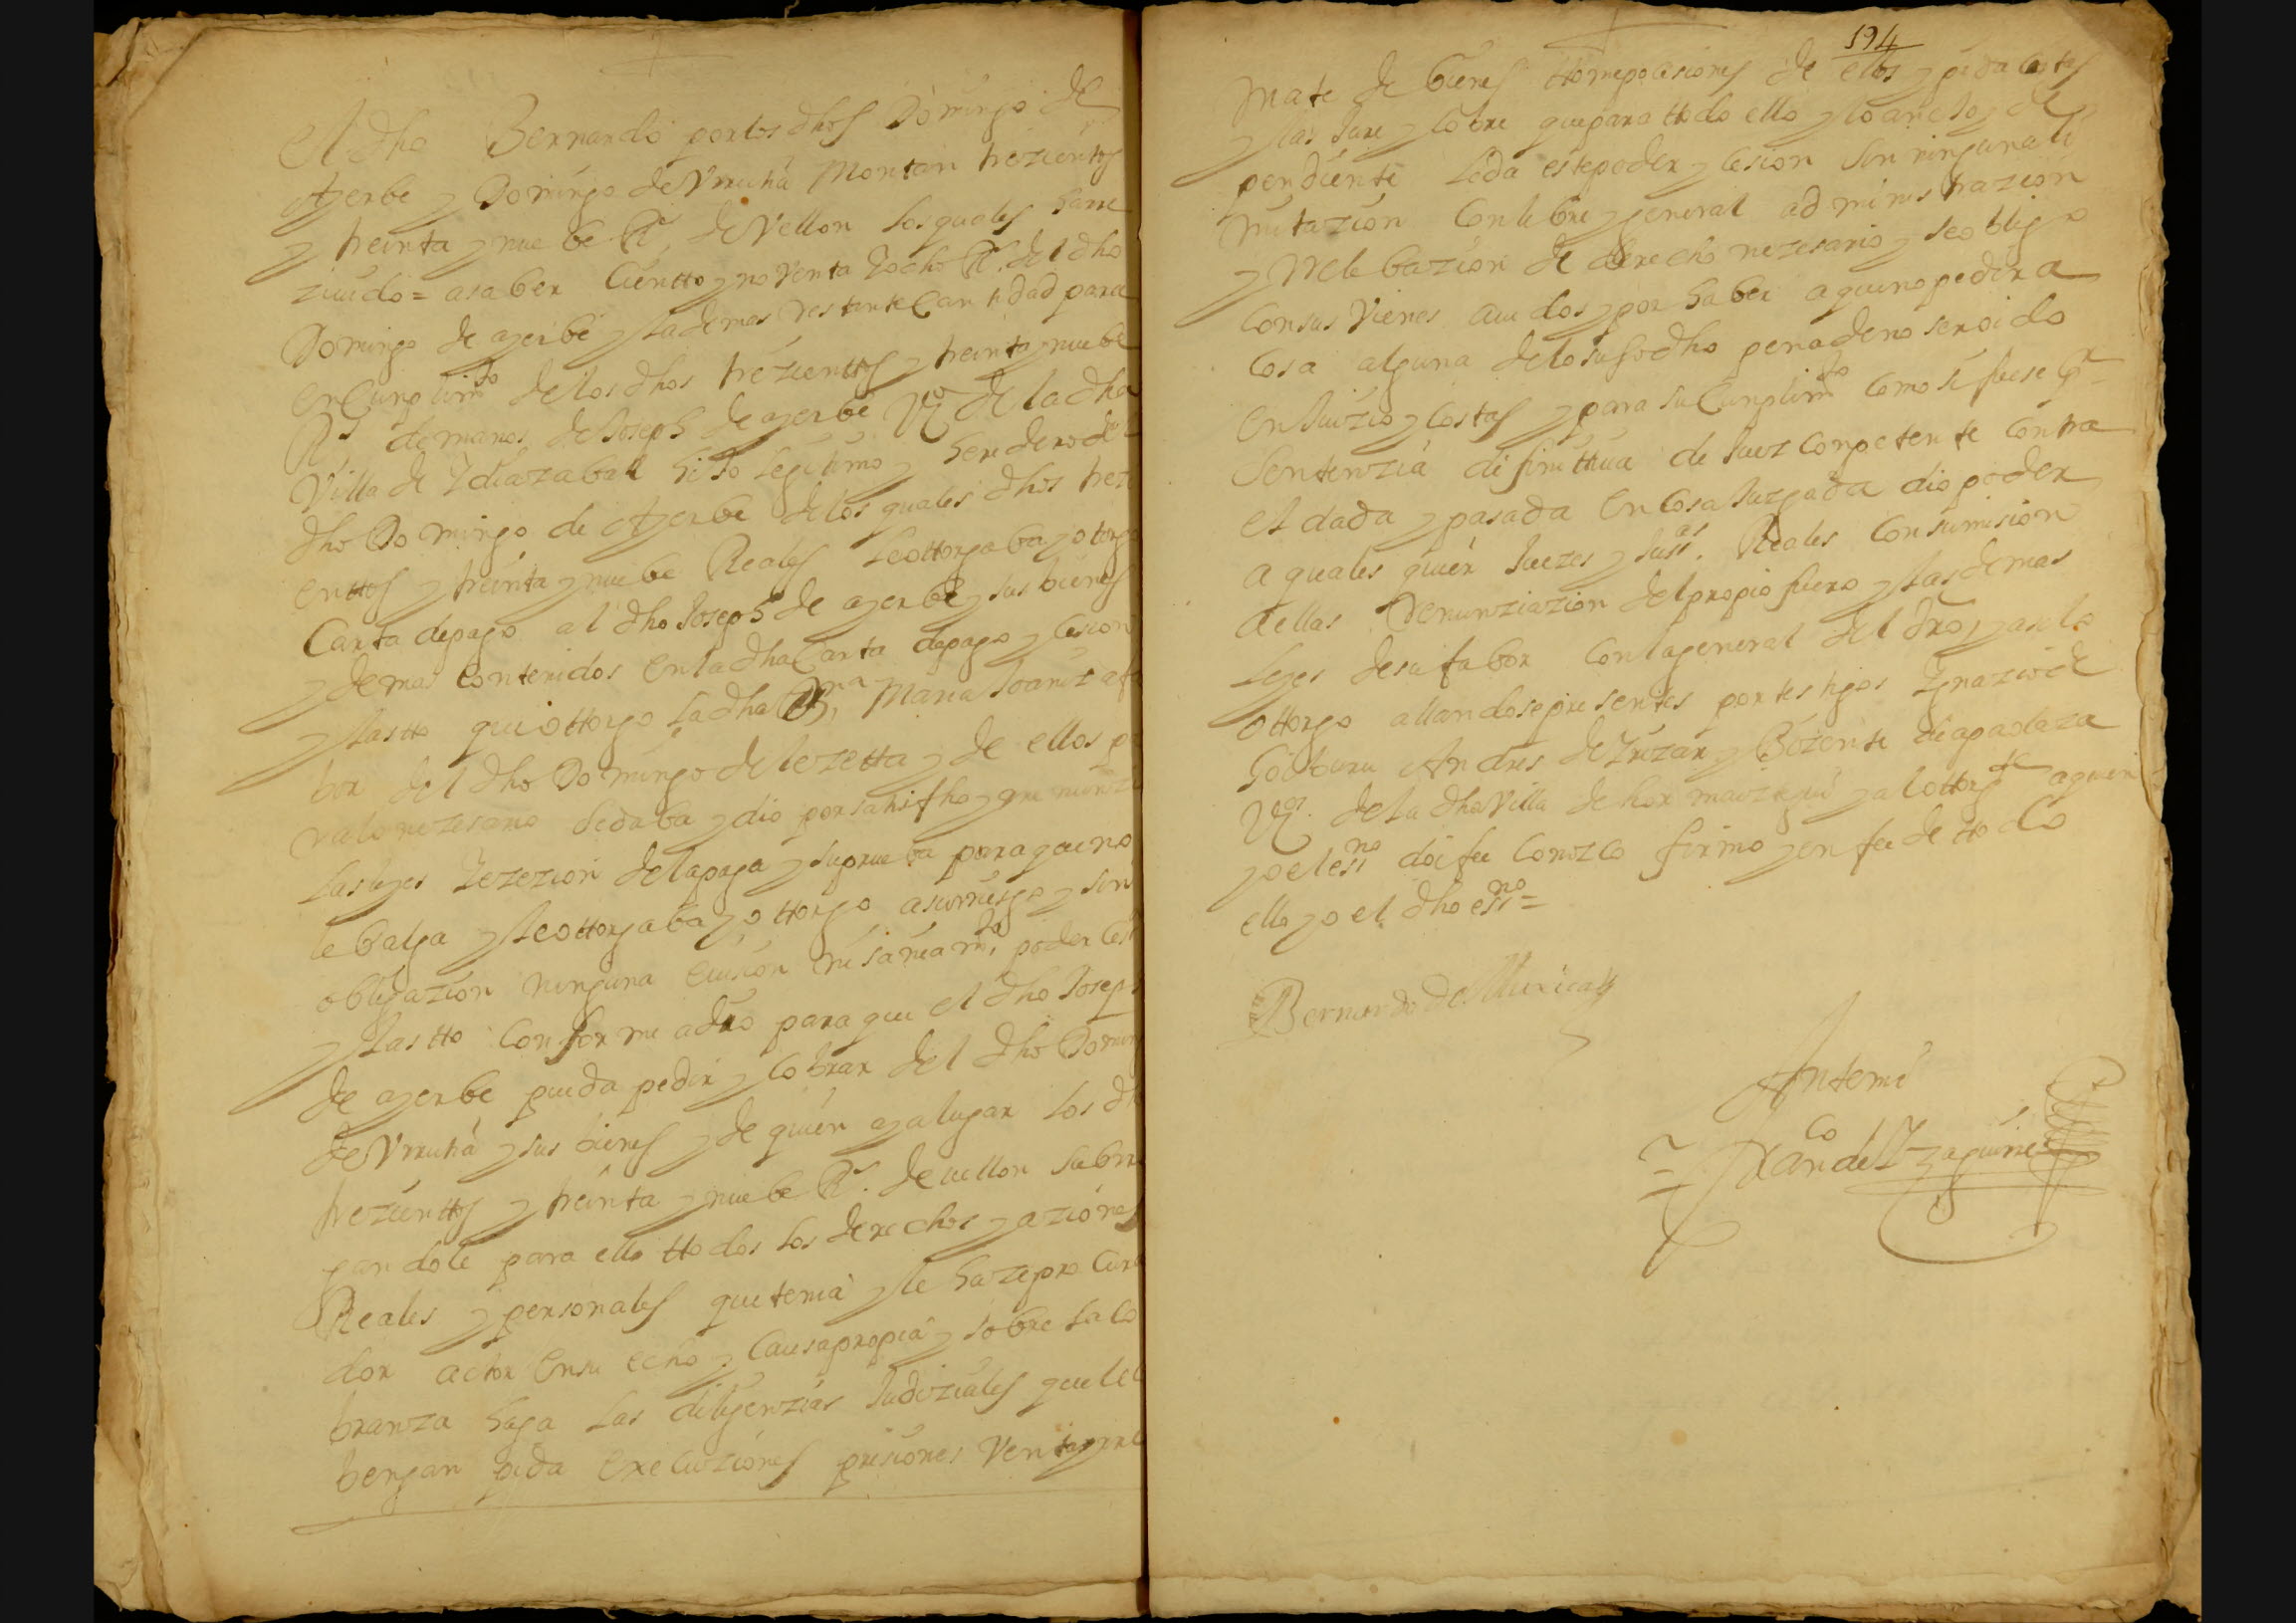 el dho Bernardo por los dhos Domingo de
Ayerbe y Domingo de Vrrutia Montan trezientos
y treinta y nuebe Rs. de Vellon los quales harre
ziuido = asaber Ciento y noventa y ocho Rs. del dho
Domingo de ayerbe y la demas restante Cantidad para
en Cunplimto de los dhos trezientos y treinta y nuebe
Rs de manos de Joseph de ayerbe Vº de la dha
Villa de Ydiazabal hijo legitimo y heredero del
dho Domingo de Ayerbe de los quales dhos trezi
entos y treinta y nuebe Reales le ottorgaba y otorgo
Carta de pago al dho Joseph de ayerbe y sus bienes
y demas contenidos en la dha Carta de pago y cesion
y lastto que ottorgo la dha Maria Joaniz a fa
bor del dho Domingo de lezetta y de ellos p
nezesario sedaba y dio por satisfho y rrenunzi
las leyes Yezezion de la paga y suprueba para que no
le balga y le ottorgaba y ottorgo asurriesgo y sin
obligazion ninguna euision ni saneamto, poder Cesi
y lastto Conforme adro para que el dho Joseph
de ayerbe pueda pedir y cobrar del dho Domin
de Vrrutia y sus bienes y de quien aya lugar los dh
trezientos y treinta y nuebe Rs. de uellon subrro
gandole para ello ttodos los derechos y aziones
Reales y personales que tenia y le haze procura
dor actor en su echo y Causa propia y sobre la co
branza haga las diligenzias Judiziales que le c
bengan pida execuziones prisiones Ventas y rre
194
mate de bienes ttomeposesiones de ellos y pida costas
y las Jure y cobre que para ttodo ello y lo anejo y de
pendiente leda este poder y cesion sin ninguna li
mitazion con libre y general administrazion
y rrelebazion de derecho nezesario y se obligo
con sus Vienes auidos y por haber a que no pedira
cosa alguna de lo susodho pena de no ser oido
en Juizio y costas y para su Cunplimto como si fuese Pr
sentenzia difinittiua de Juez conpetente contra
el dada y pasada en cosa Juzgada dio poder
a quales quier Juezes y Justas. Reales con sumision
a ellas Renunziazion del propio fuero y las demas
leyes de su fabor con la general del dro y asi lo
ottorgo allandose presentes por testigos Ygnazio de
Goiburu Andres de Yrizar y Bizente de apaolaza
Vºs. de la dha Villa de hormaiztegui y al ottorgte a quien
yo el essno doi fee Conozco firmo y en fee de ttodo
ello yo el dho essno =
Bernardo de Muxica
Antemi